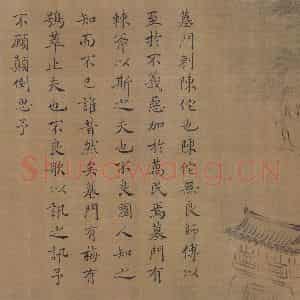 墓門刺陳佗也陳佗無良師傅以
至於不義惡加於萬民焉墓門有
棘斧以斯之夫也不良國人知之
知而不已誰昔然矣墓門有梅有
鴞萃止夫也不良歌以訊之訊予
不顧顛倒思予
Shufawang.CN